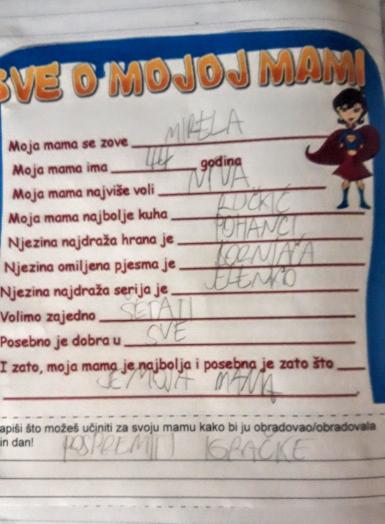 SVE O MOJOJ MAMI
Moja mama se zove MIRELA
Moja mama ima 44 godina
Moja mama najviše voli NIVA
Moja mama najbolje kuha RUČKIĆ
Njezina najdraža hrana je POHANCI
Njezina omiljena pjesma je KORNJAČA
Njezina najdraža serija je JELENKO
Volimo zajedno ŠETATI
Posebno je dobra u SVE
I zato, moja mama je najbolja i posebna je zato što
JE MOJA MAMA
apiši što možeš učiniti za svoju mamu kako bi ju obradovao/obradovala
in dan! POSPREMITI IGRAČKE